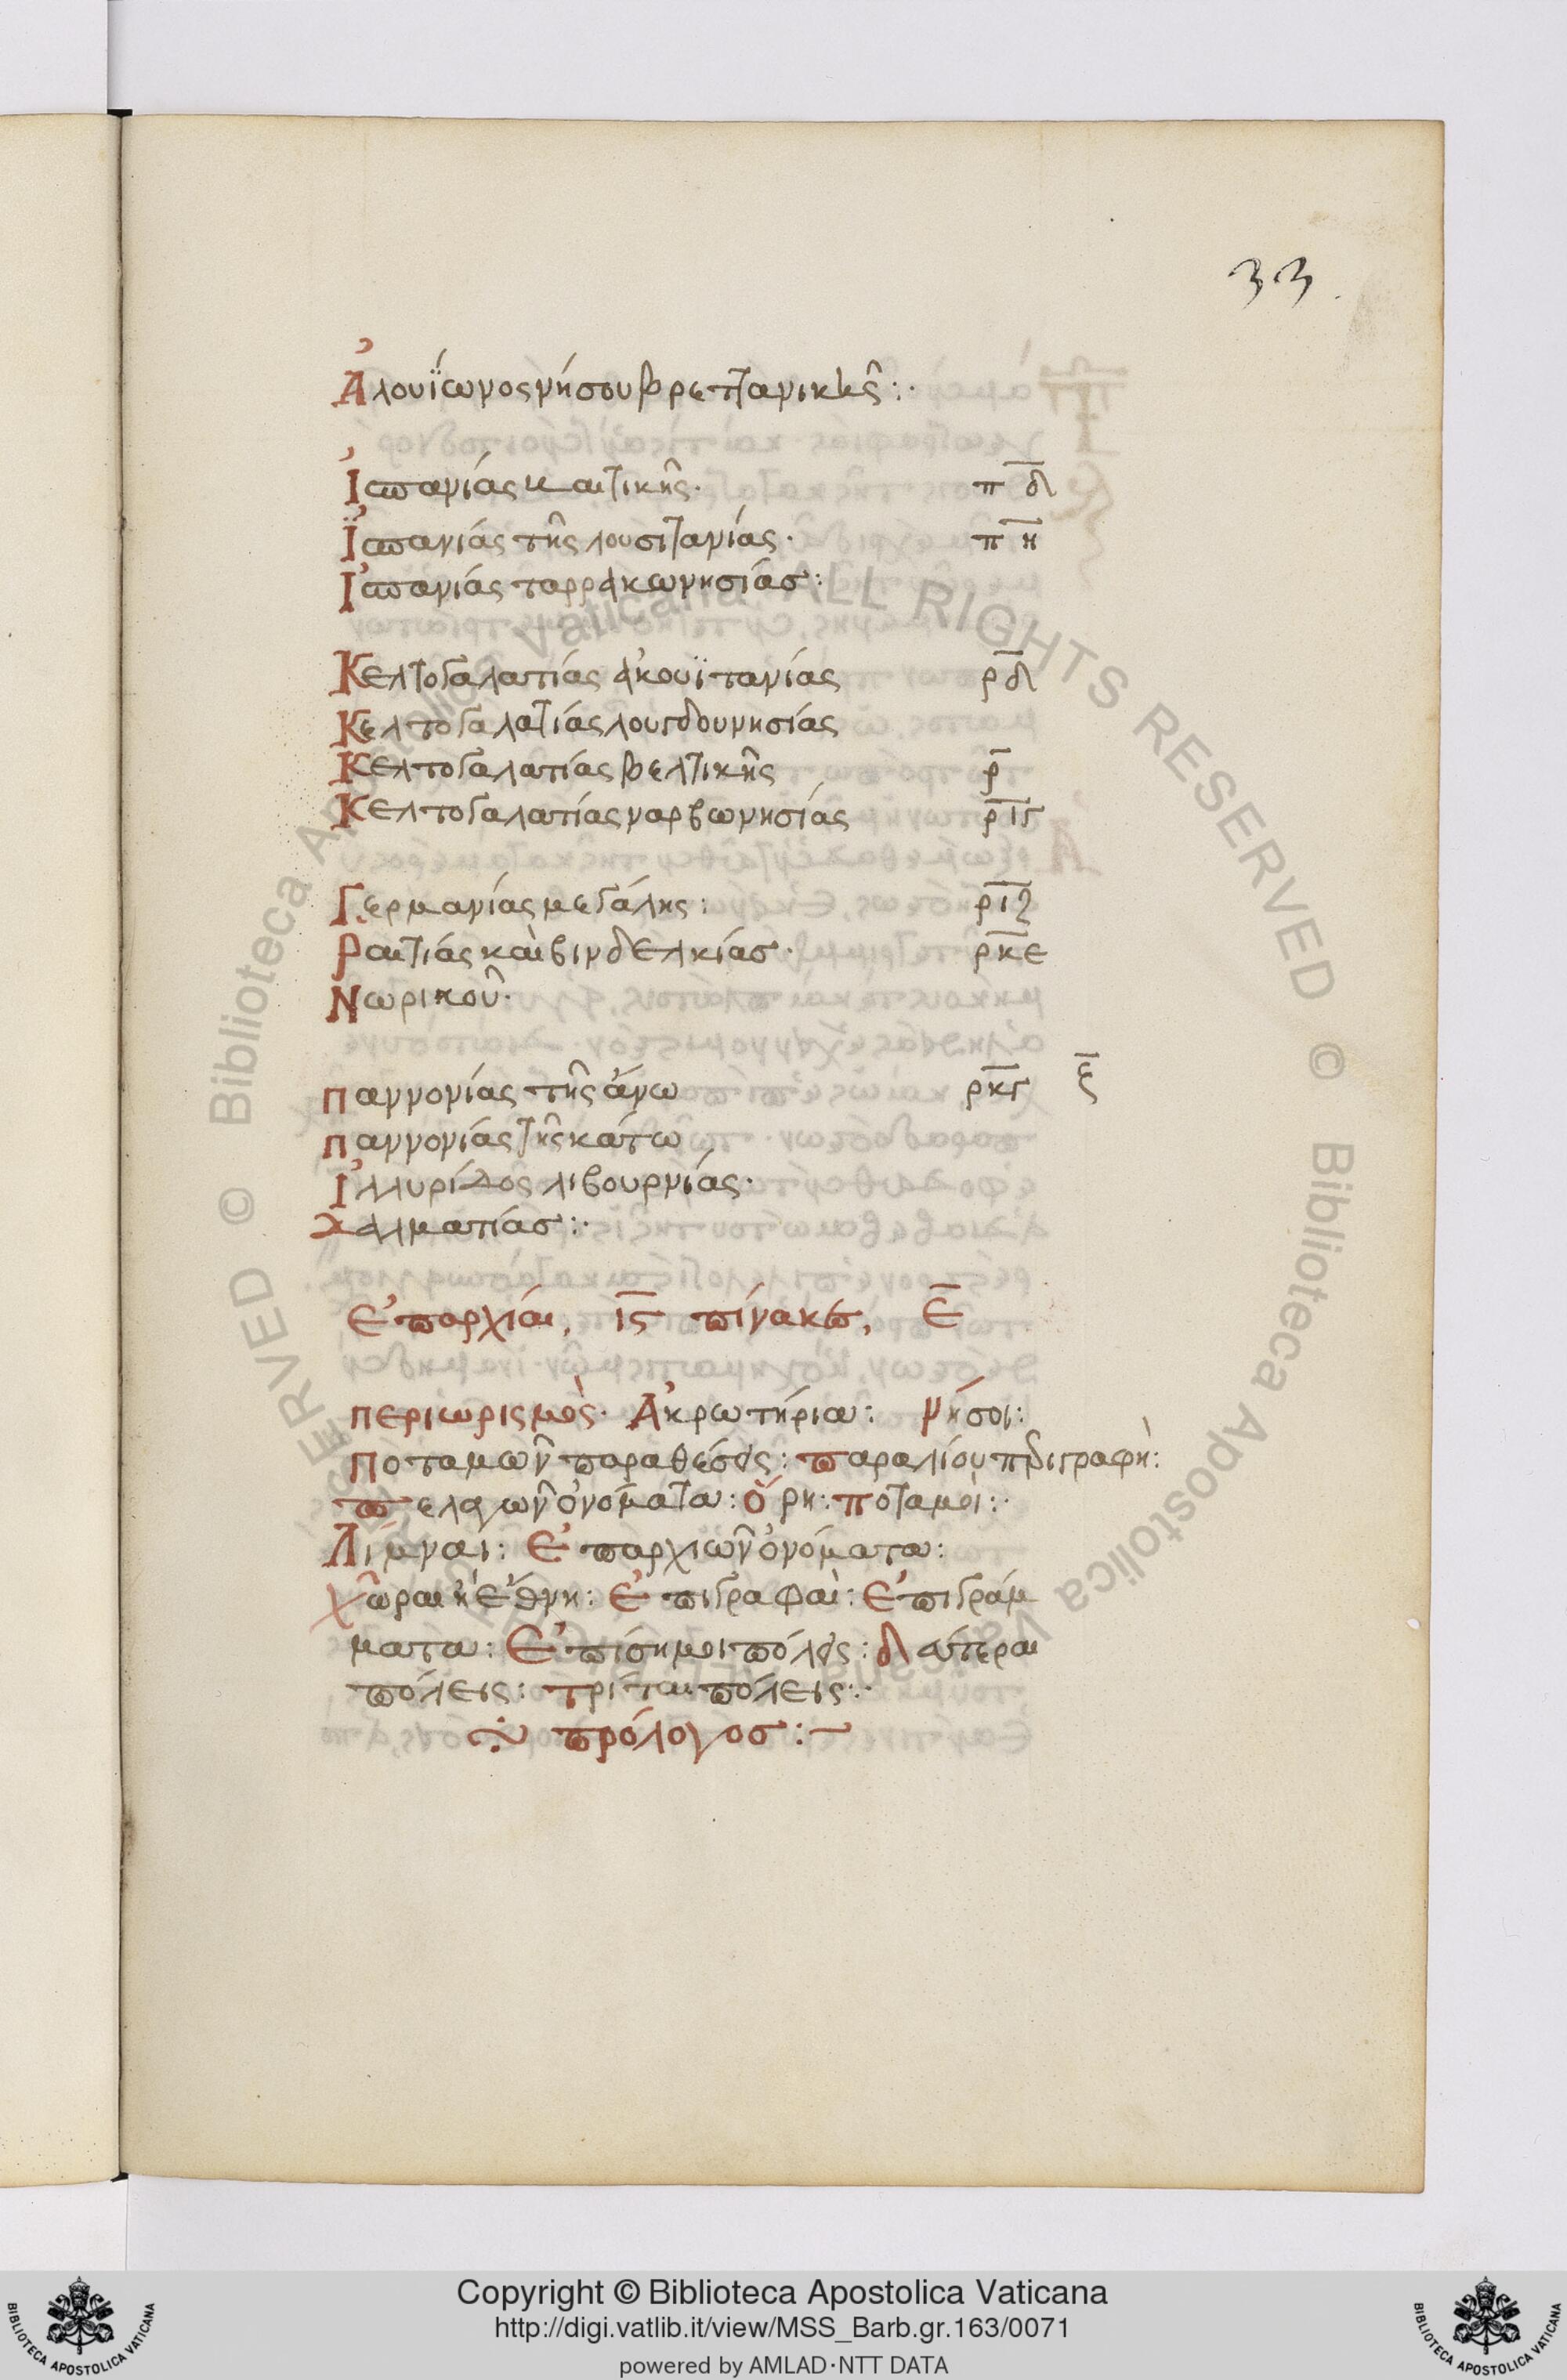 33.
Ἀλουΐωνος νήσου βρεττανικῆς :·
Ἰσπανίας βαιτικῆς· π̅δ̅
Ἰσπανίας τῆς λουσιτανίας· π̅η̅
Ἰσπανίας ταρρακωνησίασ :
Κελτογαλατίας ἀκουϊτανίας ρ̅δ̅
Κελτογαλατίας λουγδουνησίας
Κελτογαλατίας βελτικῆς ρ̅
Κελτογαλατίας ναρβωνησίας ρ̅ι̅γ̅
Γερμανίας μεγάλης :
Ραιτίας καὶ βινδελκίασ· ρ̅κ̅ε̅
Νωρικοῦ·
παννονίας τῆς ἄνω ρ̅κ̅γ̅ ξ̅
παννονίας τῆς κάτω
Ἰλλυρίδος λιβουρνίας·
Δαλματίασ :·
Ἐπαρχίαι, ι̅ς̅ πίνακες, Ε̅
περιωρισμὸς· Ἀκρωτήρια : νήσοι :
Ποταμῶν παραθέσεις : παραλίου περιγραφὴ :
πελαγῶν ὀνόματα : ὄρη : ποταμοὶ :·
Λίμναι : Ἐπαρχιῶν ὀνόματα :
χῶραι ἢ ἔθνη : Ἐπιγραφαὶ : Ἐπιγράμ
ματα : Ἐπίσημοι πόλεις : δεύτεραι
πόλεις : τρίται πόλεις :·
πρόλογοσ :
© Biblioteca Apostolica Vaticana ALL RIGHTS RESERVED © Biblioteca Apostolica Vaticana ALL RIGHTS RESERVED
Copyright © Biblioteca Apostolica Vaticana
http://digi.vatlib.it/view/MSS_Barb.gr.163/0071
powered by AMLAD·NTT DATA
BIBLIOTECA APOSTOLICA VATICANA
BIBLIOTECA APOSTOLICA VATICANA